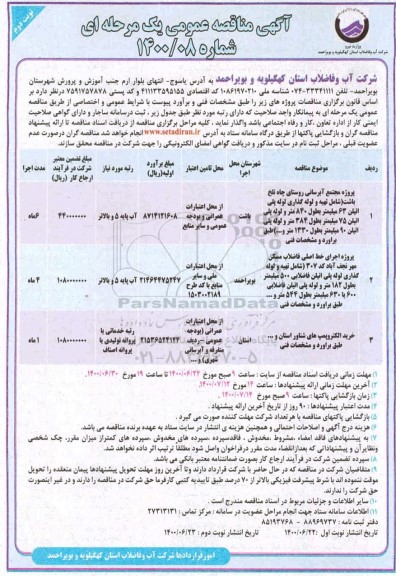 نوبت دوم
آگهی مناقصه عمومی یک مرحله ای
شماره ۱۴۰۰/۰۸
وزارت نیرو
شرکت آب و فاضلاب استان کهگیلویه و بویراحمد
شرکت آب وفاضلاب استان کهگیلویه و بویراحمد به آدرس یاسوج- انتهای بلوار ارم جنب آموزش و پرورش شهرستان
بویراحمد- تلفن ۳۳۳۴۱۱۱۱-۰۷۴ شناسه ملی ۱۰۸۶۱۹۷۰۲۱۰ کد اقتصادی ۴۱۱۱۳۳۵۹۵۱۵۵ و کد پستی ۷۵۹۱۷۵۷۸۷۸ درنظر دارد بر
اساس قانون برگزاری مناقصات پروژه های زیر را طبق مشخصات فنی و برآورد پیوست با شرایط عمومی و اختصاصی از طریق مناقصه
عمومی یک مرحله ای به پیمانکار واجد صلاحیت که دارای رتبه مورد نظر طبق جدول زیر ، ثبت درسامانه ساجار و دارای گواهی صلاحیت
ایمنی کار از اداره تعاون ،کار و رفاه اجتماعی باشد واگذار نماید . کلیه مراحل برگزاری مناقصه از دریافت اسناد مناقصه تا ارائه پیشنهاد
مناقصه گران و بازگشایی پاکتها از طریق درگاه سامانه ستاد به آدرس www.setadiran.ir انجام خواهد شد مناقصه گران درصورت عدم
عضویت قبلی ، مراحل ثبت نام در سایت مذکور و دریافت گواهی امضای الکترونیکی را جهت شرکت در مناقصه محقق سازند.
ردیف موضوع مناقصه شهرستان محل اجرا محل تامین اعتبار مبلغ برآورد اولیه(ریال) رتبه مورد نیاز مبلغ تضمین معتبر شرکت در فرآیند ارجاع کار (ریال) مدت اجرا
۱ پروژه مجتمع آبرسانی روستای چاه تلخ باشت(شامل تهیه و لوله گذاری لوله پلی اتیلن ۶۳ میلیمتر بطول ۸۴۰ متر و لوله پلی اتیلن ۷۵ میلیمتر بطول ۳۸۴ متر و لوله پلی اتیلن ۹۰ میلیمتر بطول ۱۳۳۰ متر و...)طبق برآورد و مشخصات فنی باشت از محل اعتبارات عمرانی و بودجه عمومی و سایر منابع ۸۷۱۴۱۲۱۶۰۸ آب پایه ۵ و بالاتر ۴۴۰۰۰۰۰۰۰ ۶ماه
۲ پروژه اجرای خط اصلی فاضلاب مسکن مهر نجف آباد کد ۳۰۷ (شامل تهیه و لوله گذاری لوله پلی اتیلن فاضلابی ۵۰۰ میلیمتر بطول ۱۸۲ متر و لوله پلی اتیلن فاضلابی ۶۰۰ یا ۶۳۰ میلیمتر بطول ۵۴۴ متر و ... طبق برآورد و مشخصات فنی بویراحمد از محل اعتبارات ملی و سایر منابع با کد طرح ۱۵۰۳۰۰۲۱۸۹ ۲۱۴۶۴۴۷۵۲۴۷ آب پایه ۵ و بالاتر ۱۰۸۰۰۰۰۰۰۰ ۴ ماه
۳ خرید الکتروپمپ های شناور استان و ... طبق برآورد و مشخصات فنی استان از محل اعتبارات عمرانی (بودجه عمومی -ردیف متفرقه و آبرسانی شهری) و... ۲۱۵۳۶۵۲۴۱۴۴ رتبه خدماتی یا پروانه تولیدی یا پروانه اصناف ۱۰۸۰۰۰۰۰۰۰ ۱ ماه
۱) مهلت زمانی دریافت اسناد مناقصه از سایت : ساعت ۹ صبح مورخ ۱۴۰۰/۰۶/۲۲ تا ساعت ۱۹ مورخ ۱۴۰۰/۰۶/۳۰ .
۲) آخرین مهلت زمانی ارائه پیشنهادها : ساعت ۱۴ مورخ ۱۴۰۰/۰۷/۱۳
۳) زمان بازگشایی پاکتها : ساعت ۹ صبح مورخ ۱۴۰۰/۰۷/۱۴ .
۴) مدت اعتبار پیشنهادها : ۹۰ روز از تاریخ آخرین ارائه پیشنهاد .
۵) بازگشایی پاکتهای مناقصه با هرتعداد شرکت مهلت کننده صورت می گیرد .
۶) هزینه درج آگهی و اصلاحات احتمالی و همچنین هزینه ی انتشار در سایت ستاد به عهده برنده مناقصه می باشد.
۷) به پیشنهادهای فاقد امضاء ،مشروط ،مخدوش ، فاقدسپرده ،سپرده های مخدوش ،سپرده های کمتراز میزان مقرر، چک شخصی
ونظایرآن و پیشنهاداتی که بعدازانقضاء مدت مقرر درفراخوان واصل شود مطلقا ترتیب اثر داده نخواهد شد.
۸) سپرده تضمین شرکت در فرآیند ارجاع کار بصورت ضمانتنامه معتبر بانکی می باشد.
۹) متقاضیان شرکت در مناقصه که در حال حاضر با شرکت قرارداد دارند وتا آخرین روز مهلت تحویل پیشنهادها پیمان منعقده را تحویل
موقت ننموده اند با شرط پیشرفت فیزیکی بالاتر از ۷۰ درصد طبق تاییدیه کتبی کارفرما حق شرکت در مناقصه را دارند و در غیر اینصورت
حق شرکت را ندارند.
۱۰) سایر اطلاعات و جزئیات مربوط در اسناد مناقصه مندرج است .
۱۱) اطلاعات سامانه ستاد جهت انجام مراحل عضویت در سامانه : مرکز تماس : ۲۷۳۱۳۱۳۱
دفتر ثبت نامه : ۸۸۹۶۹۷۳۷ - ۸۵۱۹۳۷۶۸
تاریخ انتشار نوبت اول :۱۴۰۰/۰۶/۲۲ تاریخ انتشار نوبت دوم : ۱۴۰۰/۰۶/۲۳
امورقراردادها شرکت آب وفاضلاب استان کهگیلویه و بویراحمد
ParsNamadData
۰۲۱-۸۸۳۴۹۶۷۰-۵